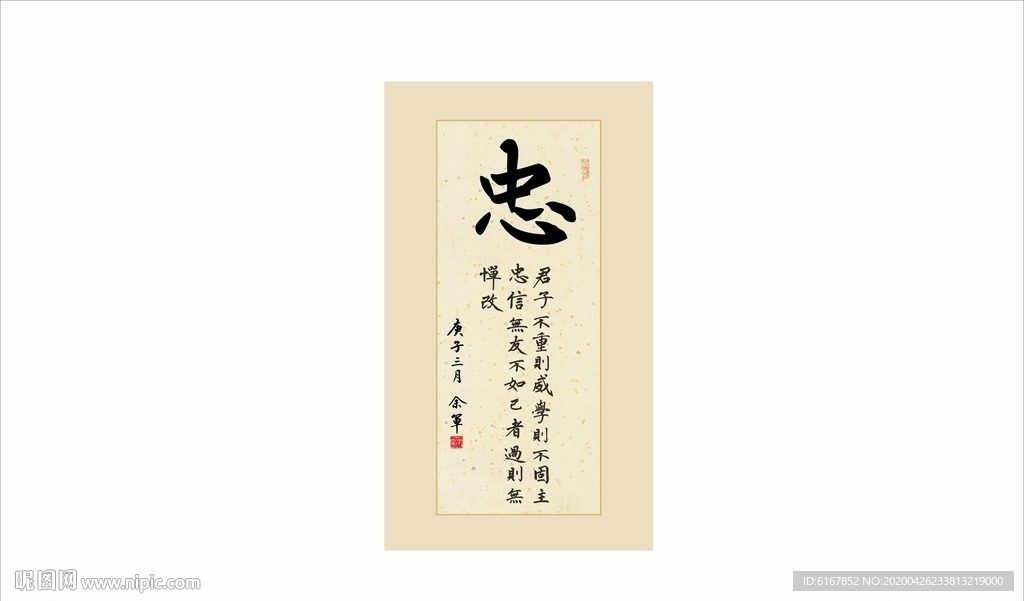 忠
君子不重則威學則不固主
忠信無友不如己者過則無
憚改
庚子三月 余軍
昵图网 www.nipic.com
ID:6167852 NO:20200426233813219000